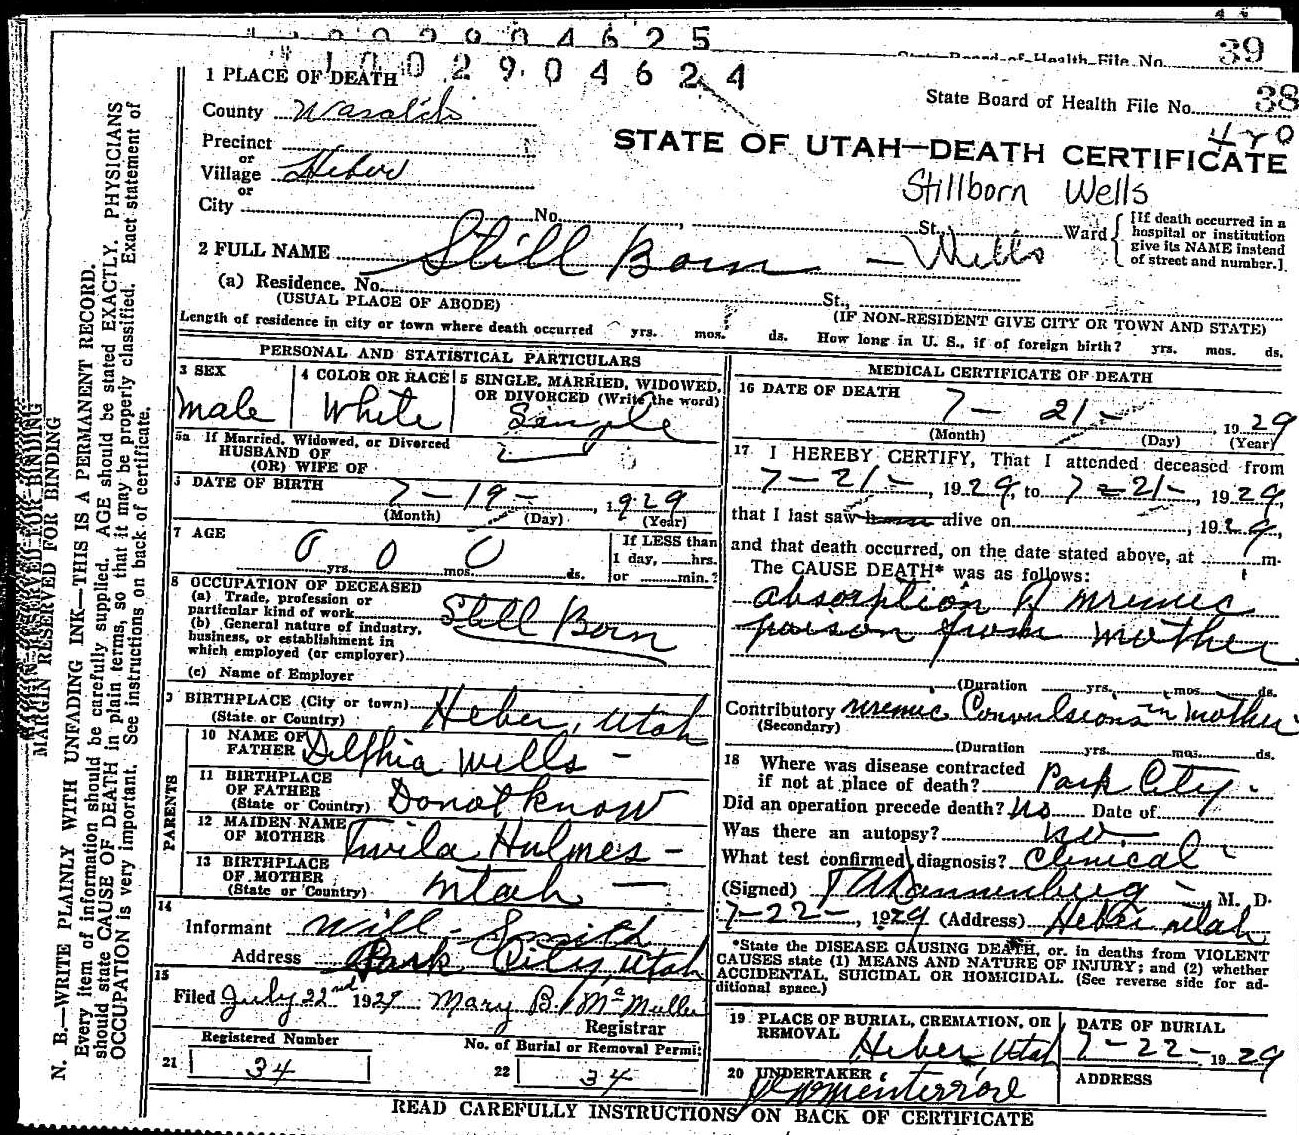 1 0 0 2 9 0 4 6 2 5
State Board of Health File No. 39
1 0 0 2 9 0 4 6 2 4
1 PLACE OF DEATH
State Board of Health File No. 38
County Wasatch
4 r 0
Precinct
STATE OF UTAH—DEATH CERTIFICATE
or
Village Heber
Stillborn Wells
or
City No. , St., Ward
[If death occurred in a
hospital or institution
give its NAME instead
of street and number.]
2 FULL NAME Still Born — Wells
(a) Residence. No. St.,
(USUAL PLACE OF ABODE) (IF NON-RESIDENT GIVE CITY OR TOWN AND STATE)
Length of residence in city or town where death occurred yrs. mos. ds. How long in U. S., if of foreign birth? yrs. mos. ds.
PERSONAL AND STATISTICAL PARTICULARS
3 SEX
Male
4 COLOR OR RACE
White
5 SINGLE, MARRIED, WIDOWED,
OR DIVORCED (Write the word)
Single
5a If Married, Widowed, or Divorced
HUSBAND OF
(OR) WIFE OF
DATE OF BIRTH 7 - 19 - 1929
(Month) (Day) (Year)
7 AGE 0 0 0
yrs. mos. ds.
If LESS than
1 day, hrs.
or min.?
8 OCCUPATION OF DECEASED
(a) Trade, profession or
particular kind of work Still Born
(b) General nature of industry,
business, or establishment in
which employed (or employer)
(c) Name of Employer
9 BIRTHPLACE (City or town) Heber, Utah
(State or Country)
PARENTS
10 NAME OF
FATHER Delphia Wells -
11 BIRTHPLACE
OF FATHER
(State or Country) Do not know
12 MAIDEN NAME
OF MOTHER Twila Hulmes -
13 BIRTHPLACE
OF MOTHER
(State or Country) Utah —
14
Informant Will - Smith
Address Park City, Utah
15
Filed July 22nd 1929 Mary B. McMullin
Registrar
Registered Number
21 34
No. of Burial or Removal Permit
22 34
MEDICAL CERTIFICATE OF DEATH
16 DATE OF DEATH
7 - 21 - 1929
(Month) (Day) (Year)
17 I HEREBY CERTIFY, That I attended deceased from
7 - 21 - , 1929, to 7 - 21 - , 1929,
that I last saw alive on , 1929,
and that death occurred, on the date stated above, at m.
The CAUSE DEATH* was as follows:
absorption of uremic
poison from mother
(Duration yrs. mos. ds.
Contributory uremic Convulsions in mother
(Secondary)
(Duration yrs. mos. ds.
18 Where was disease contracted
if not at place of death? Park City -
Did an operation precede death? No Date of
Was there an autopsy? no.
What test confirmed diagnosis? Clinical
(Signed) T A Dannenberg - M. D.
7-22-, 1929 (Address) Heber Utah
*State the DISEASE CAUSING DEATH, or, in deaths from VIOLENT
CAUSES state (1) MEANS AND NATURE OF INJURY; and (2) whether
ACCIDENTAL, SUICIDAL OR HOMICIDAL. (See reverse side for ad-
ditional space.)
19 PLACE OF BURIAL, CREMATION, OR
REMOVAL
Heber, Utah
DATE OF BURIAL
7-22-1929
20 UNDERTAKER
ADDRESS
READ CAREFULLY INSTRUCTIONS ON BACK OF CERTIFICATE
MARGIN RESERVED FOR BINDING
N. B.—WRITE PLAINLY WITH UNFADING INK—THIS IS A PERMANENT RECORD.
Every item of information should be carefully supplied. AGE should be stated EXACTLY. PHYSICIANS
should state CAUSE OF DEATH in plain terms, so that it may be properly classified. Exact statement of
OCCUPATION is very important. See instructions on back of certificate.